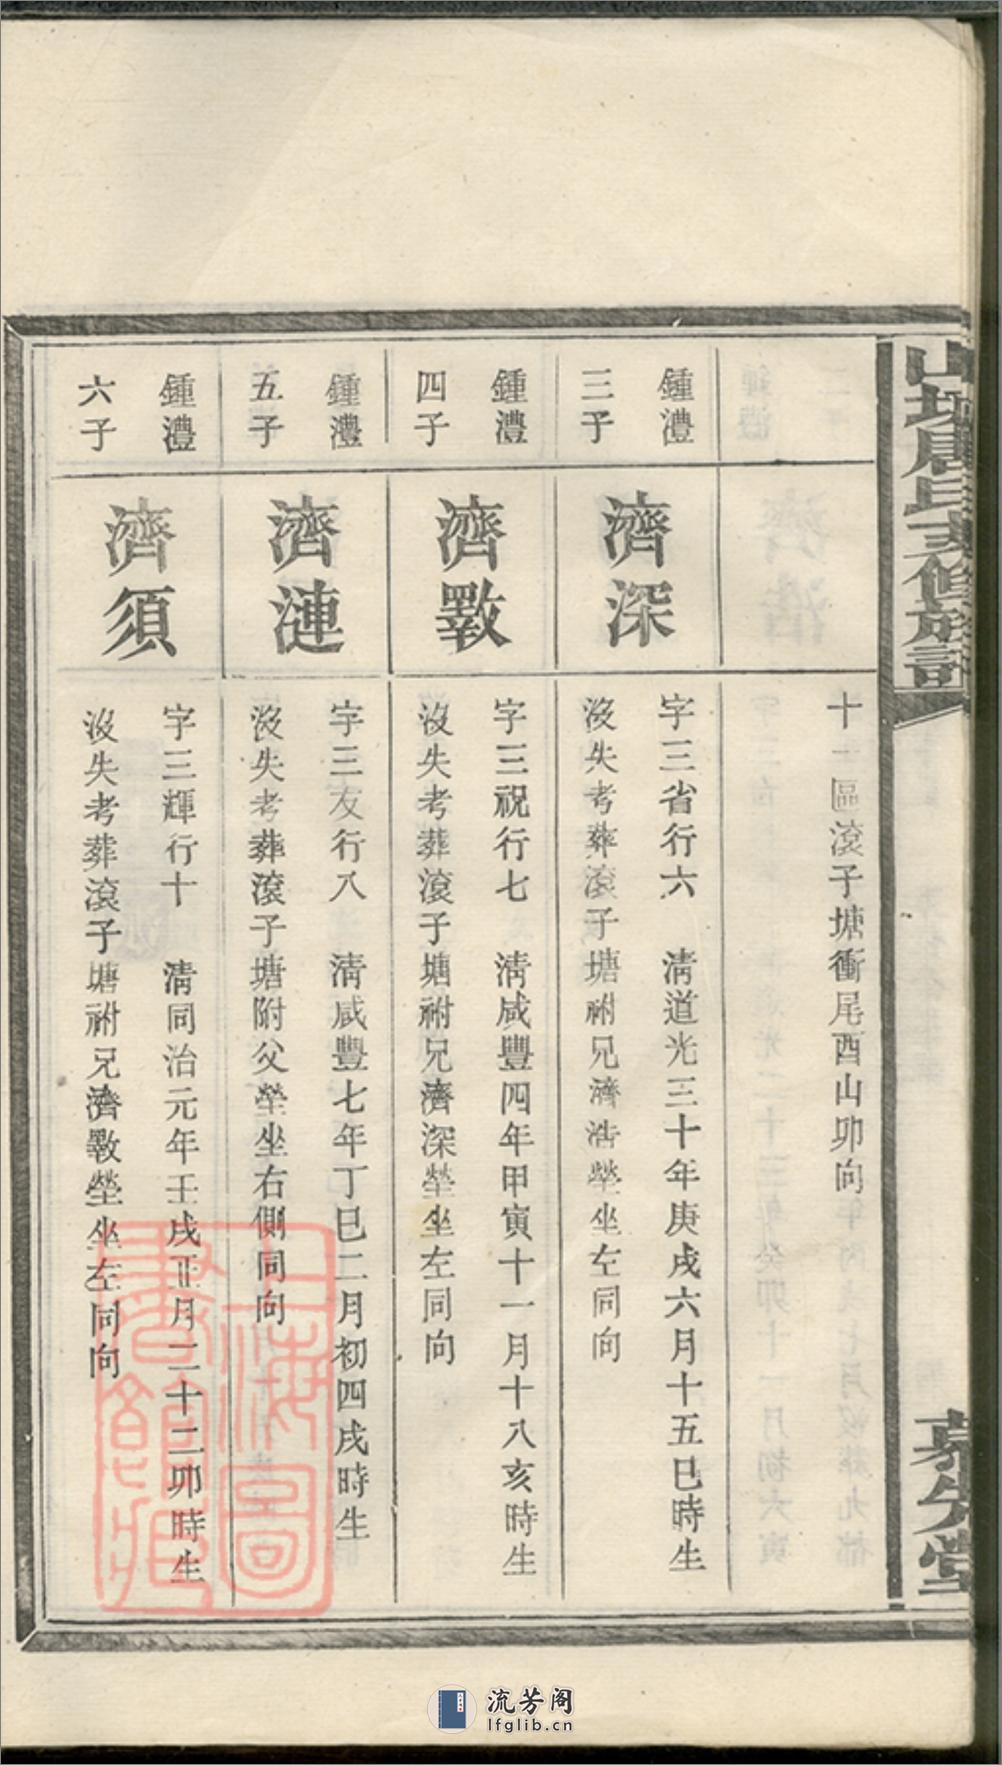 山塘唐氏支修族譜
慕先堂
十一區滾子塘衝尾酉山卯向
鍾澧
三子
濟深
字三省行六　清道光三十年庚戌六月十五巳時生
沒失考葬滾子塘祔兄濟浩塋坐左同向
鍾澧
四子
濟斁
字三祝行七　清咸豐四年甲寅十一月十八亥時生
沒失考葬滾子塘祔兄濟深塋坐左同向
鍾澧
五子
濟漣
字三友行八　清咸豐七年丁巳二月初四戌時生
沒失考葬滾子塘附父塋坐右側同向
鍾澧
六子
濟須
字三輝行十　清同治元年壬戌正月二十二卯時生
沒失考葬滾子塘祔兄濟斁塋坐左同向
上海圖
書館藏
流芳阁
lfglib.cn